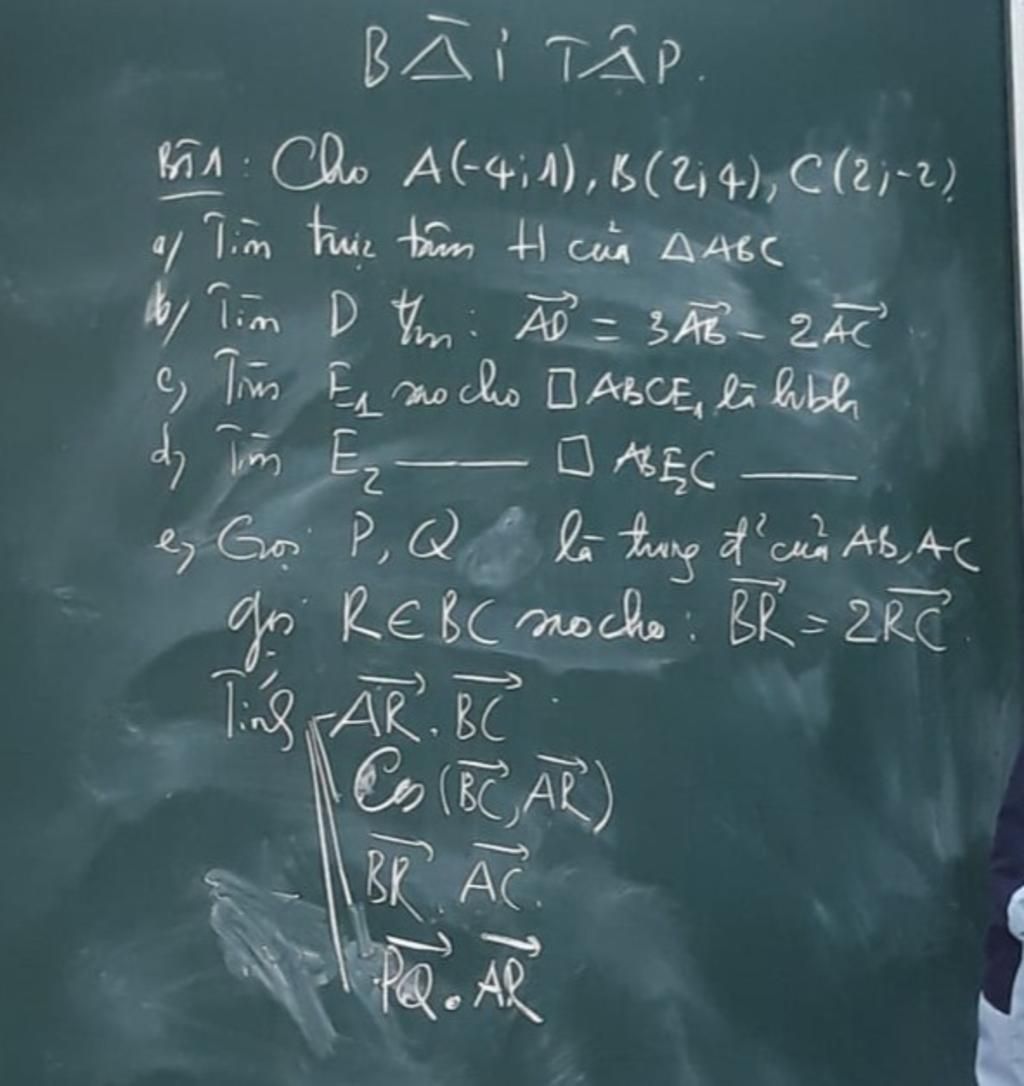 BÀI TẬP.
BT1: Cho A(-4;1), B(2;4), C(2;-2)
a/ Tìm trực tâm H của △ABC
b/ Tìm D tm: $\overrightarrow{AD} = 3\overrightarrow{AB} - 2\overrightarrow{AC}$
c, Tìm E₁ sao cho □ ABCE₁ là hbh
d, Tìm E₂ —— □ ABE₂C ——
e, Gọi P, Q là trung đ² của AB, AC
gọi R ∈ BC sao cho: $\overrightarrow{BR} = 2\overrightarrow{RC}$.
Tính $\overrightarrow{AR}.\overrightarrow{BC}$
Cos ($\overrightarrow{BC}, \overrightarrow{AR}$)
$\overrightarrow{BR}.\overrightarrow{AC}$.
$\overrightarrow{PQ}.\overrightarrow{AR}$